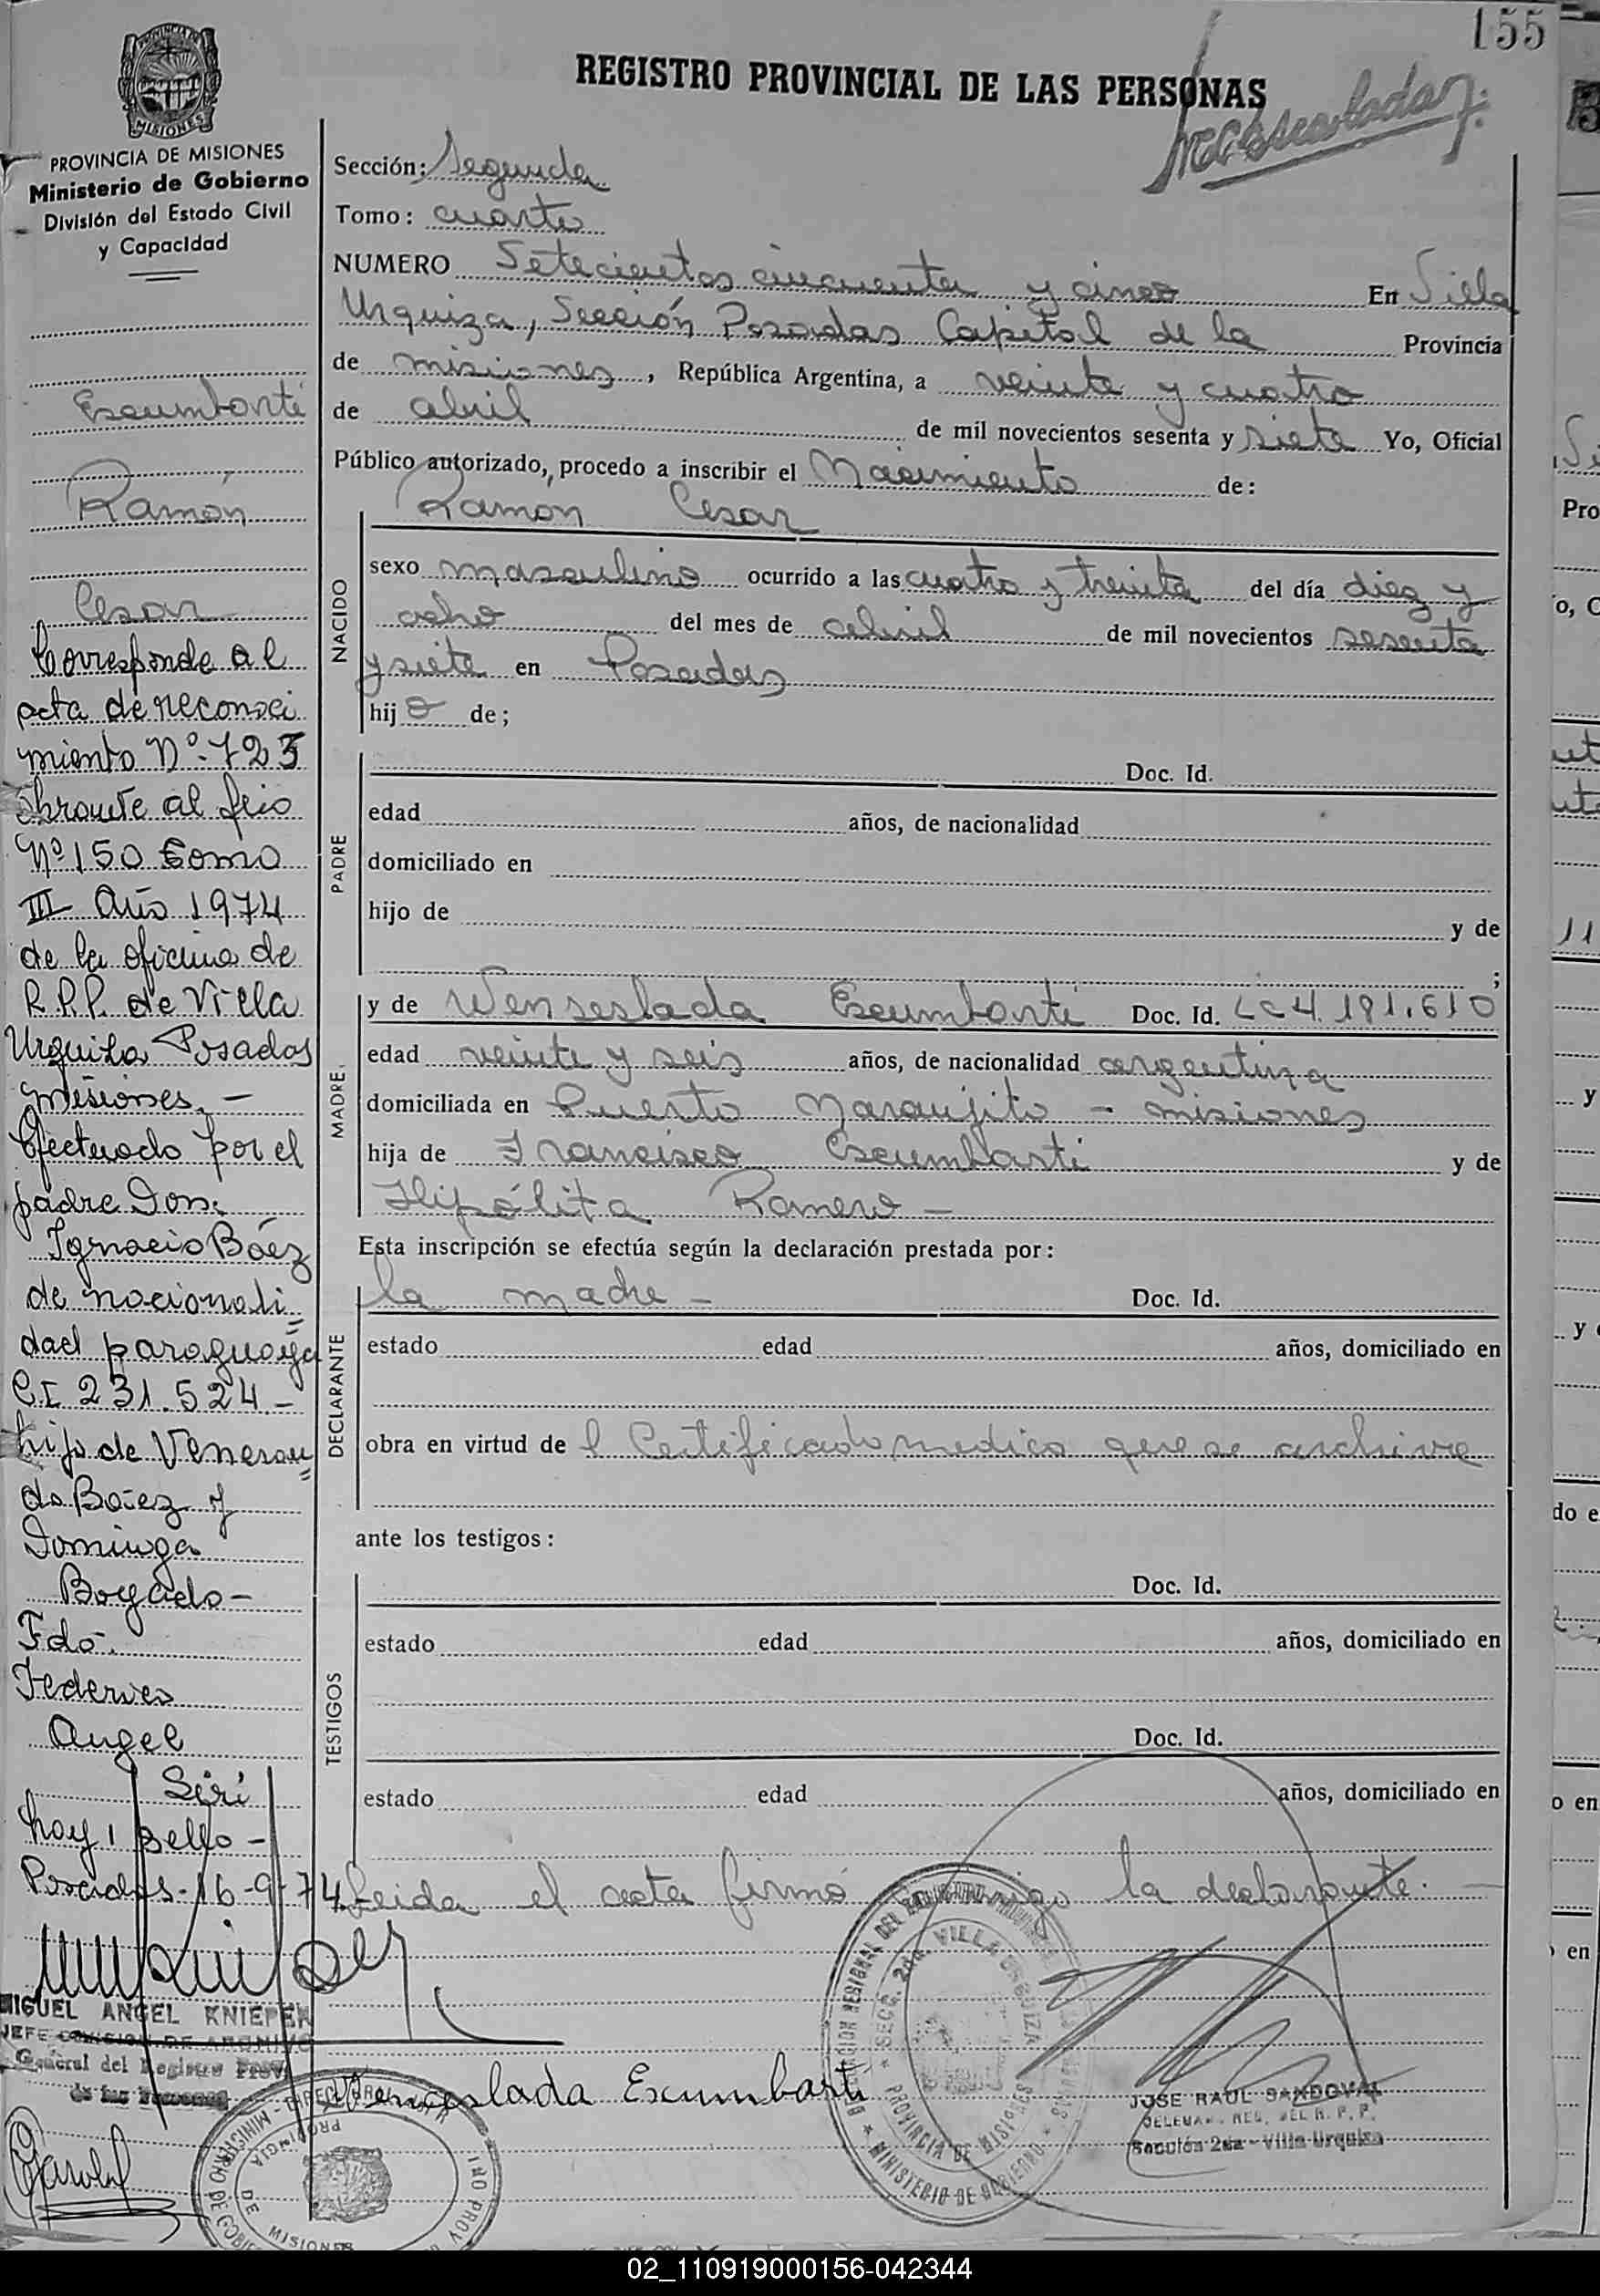 155
REGISTRO PROVINCIAL DE LAS PERSONAS
PROVINCIA DE MISIONES
Ministerio de Gobierno
División del Estado Civil
y Capacidad
Sección: Segunda
Tomo: cuarto
NUMERO Setecientos cincuenta y cinco En Villa
Urquiza, Sección Posadas Capital de la Provincia
de misiones, República Argentina, a veinte y cuatro
de abril de mil novecientos sesenta y siete Yo, Oficial
Público autorizado, procedo a inscribir el Nacimiento de:
Ramon Cesar
NACIDO
sexo masculino ocurrido a las cuatro y treinta del día diez y
ocho del mes de abril de mil novecientos sesenta
y siete en Posadas
hijo de;
PADRE
Doc. Id.
edad años, de nacionalidad
domiciliado en
hijo de y de
;
MADRE
y de Wenseslada Escumbarti Doc. Id. LC 4.191.610
edad veinte y seis años, de nacionalidad argentina
domiciliada en Puerto Naranjito - misiones
hija de Francisco Escumbarti y de
Hipólita Romero -
Esta inscripción se efectúa según la declaración prestada por:
DECLARANTE
la madre - Doc. Id.
estado edad años, domiciliado en
obra en virtud de l Certificado medico que se archiva
ante los testigos:
TESTIGOS
Doc. Id.
estado edad años, domiciliado en
Doc. Id.
estado edad años, domiciliado en
Leida el acta firmó conmigo la declarante.
Wenceslada Escumbarti
JOSE RAUL SANDOVAL
DELEGA. REG. DEL R. P. P.
Sección 2da - Villa Urquiza
Escumbarti
Ramón
Cesar
Corresponde al
acta de reconoci
miento Nº 723
obrante al feio
Nº 150 Tomo
III Año 1974
de la oficina de
R.P.P. de Villa
Urquiza Posadas
Misiones. -
Efectuado por el
padre Don:
Ignacio Báez
de nacionali
dad paraguaya
C.I. 231.524 -
hijo de Veneran
do Baez y
Dominga
Bogado -
Fdo.
Federico
Angel
Siri
hay 1 sello -
Posadas - 16-9-74
MIGUEL ANGEL KNIEPER
JEFE COMISION DE ARCHIVO
General del Registro Prov.
de las Personas
02_110919000156-042344